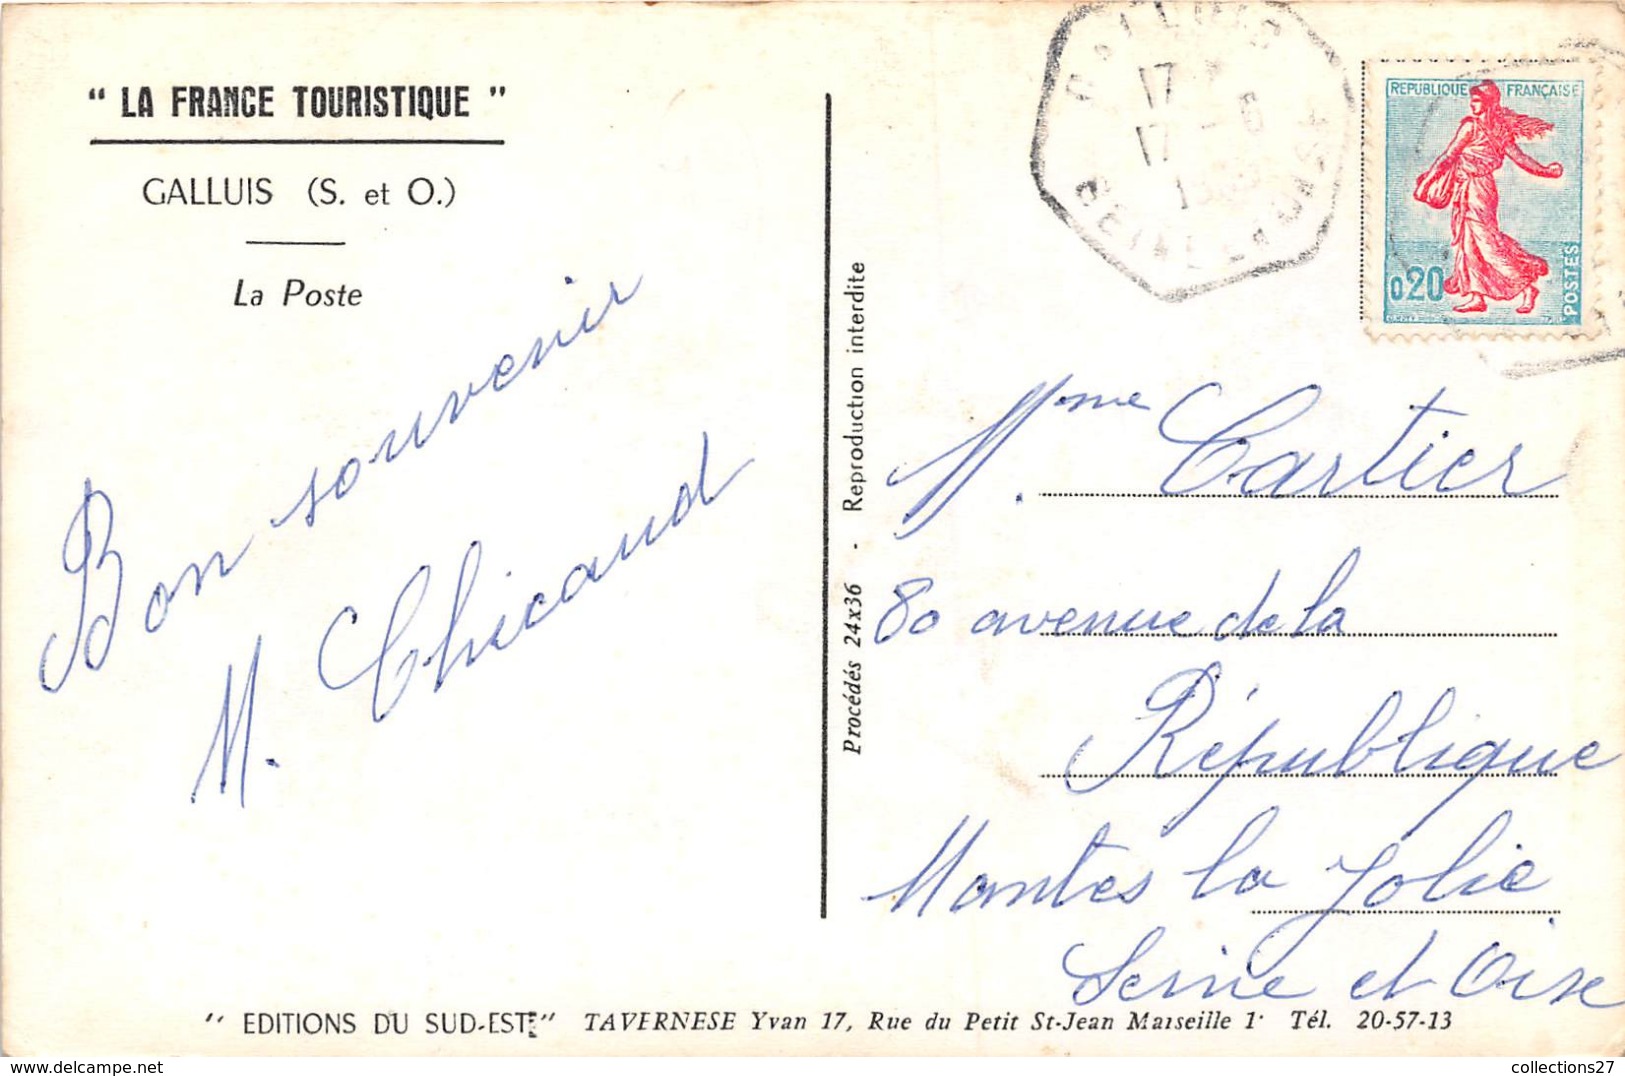 " LA FRANCE TOURISTIQUE "
GALLUIS (S. et O.)
La Poste
Bon souvenir
M. Chicaud
Procédés 24x36 - Reproduction interdite
17
17 - 6
SEINE
REPUBLIQUE FRANÇAISE
0,20
POSTES
Mme Cartier
80 avenue de la
République
Mantes la Jolie
Seine et Oise
" EDITIONS DU SUD-EST " TAVERNESE Yvan 17, Rue du Petit St-Jean Marseille 1r Tél. 20-57-13
collections27